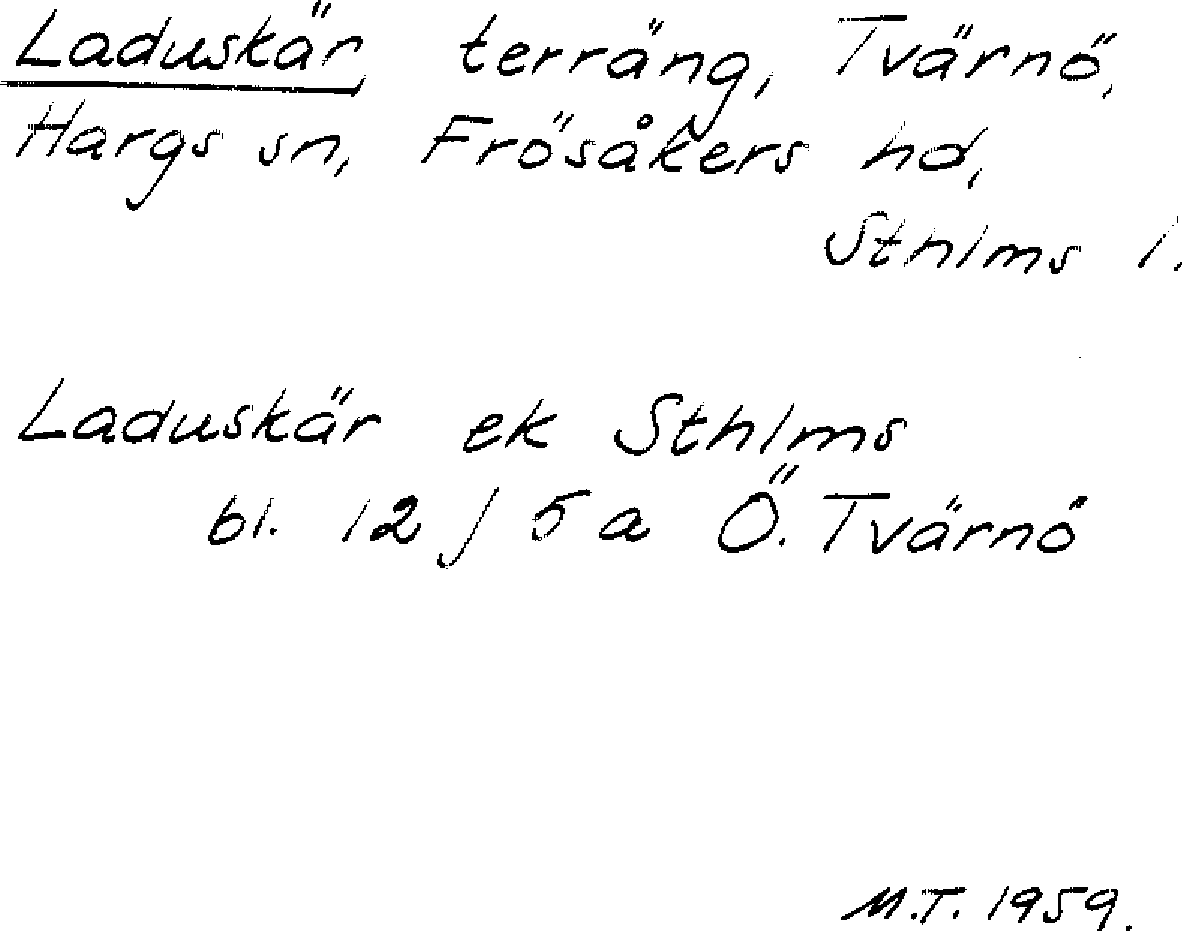 Laduskär terräng, Tvärnö,
Hargs sn, Frösåkers hd,
Sthlms l.
Laduskär ek Sthlms
bl. 12 j 5 a Ö. Tvärnö
M.T. 1959.